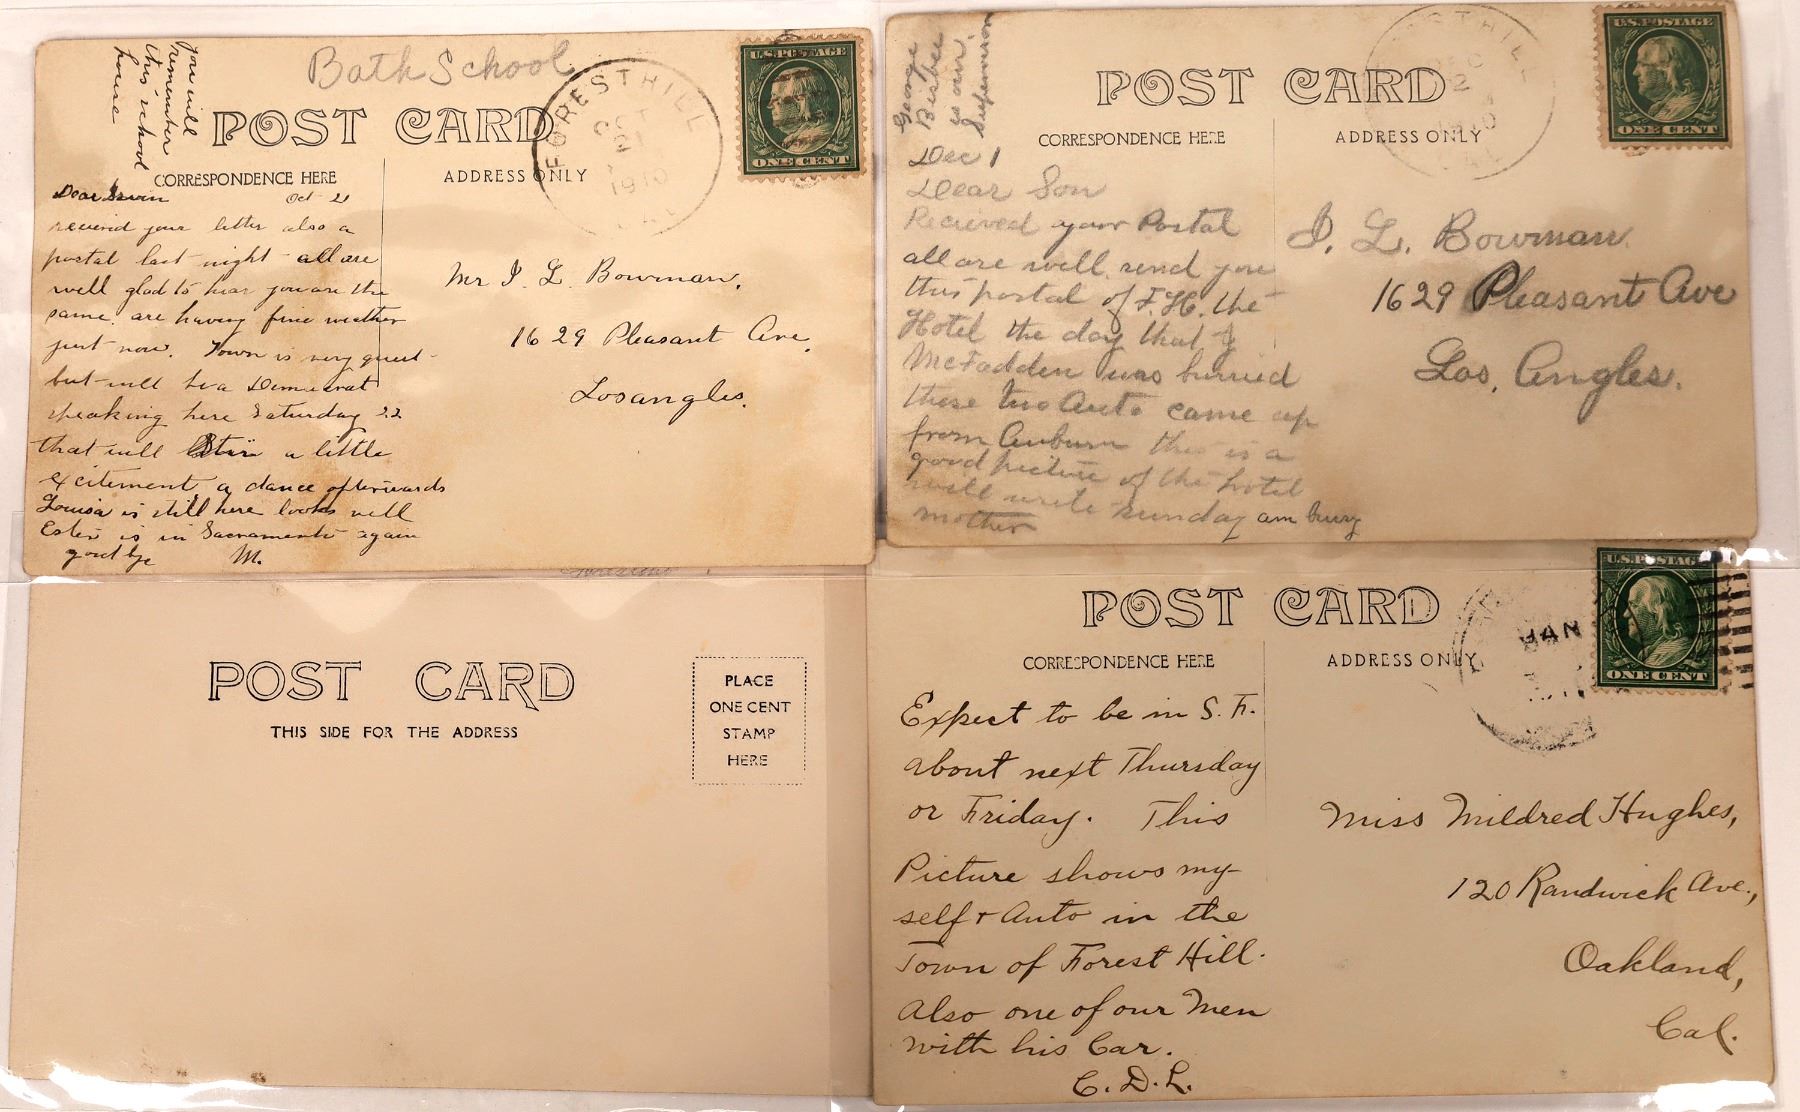 Bath School
You will
remember
this school
house
POST CARD
FORESTHILL
1910
CAL
U.S. POSTAGE
ONE CENT
CORRESPONDENCE HERE
ADDRESS ONLY
Dear Irwin Oct 21
recievd your letter also a
postal last night - all are
well glad to hear you are the
same. are having fine weather
just now. Town is very quiet -
but will be a Democrat
speaking here Saturday 22
that will Stir a little
excitement a dance afterwards
Louisa is still here looks well
Ester is in Sacramento again
good bye M.
Mr I L Bowman,
1629 Pleasant Ave,
Los angles.
George
Bisbee
is our
Supervisor
POST CARD
FORESTHILL
DEC
2
1910
CAL
U.S. POSTAGE
ONE CENT
CORRESPONDENCE HERE
ADDRESS ONLY
Dec 1
Dear Son
Recieved your Postal
all are well. send you
this postal of F.H. the
Hotel the day that J
McFadden was burried
these two Auto came up
from Auburn this is a
good picture of the hotel
will write sunday am busy
mother
I. L. Bowman.
1629 Pleasant Ave
Los, Angles.
POST CARD
THIS SIDE FOR THE ADDRESS
PLACE
ONE CENT
STAMP
HERE
POST CARD
JAN
U.S. POSTAGE
ONE CENT
CORRESPONDENCE HERE
ADDRESS ONLY
Expect to be in S. F.
about next Thursday
or Friday. This
Picture shows my-
self + Auto in the
Town of Forest Hill.
Also one of our Men
with his Car.
C. D. L.
Miss Mildred Hughes,
120 Randwick Ave.,
Oakland,
Cal.